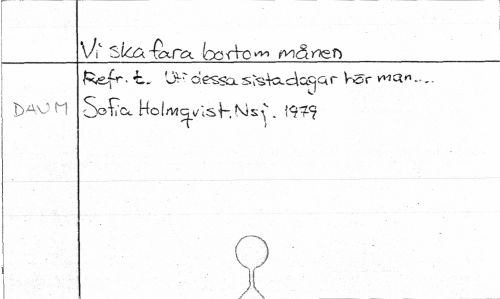 Vi ska fara bortom månen
Refr. t. Uti dessa sista dagar hör man....
DAUM Sofia Holmqvist. Nsj. 1979